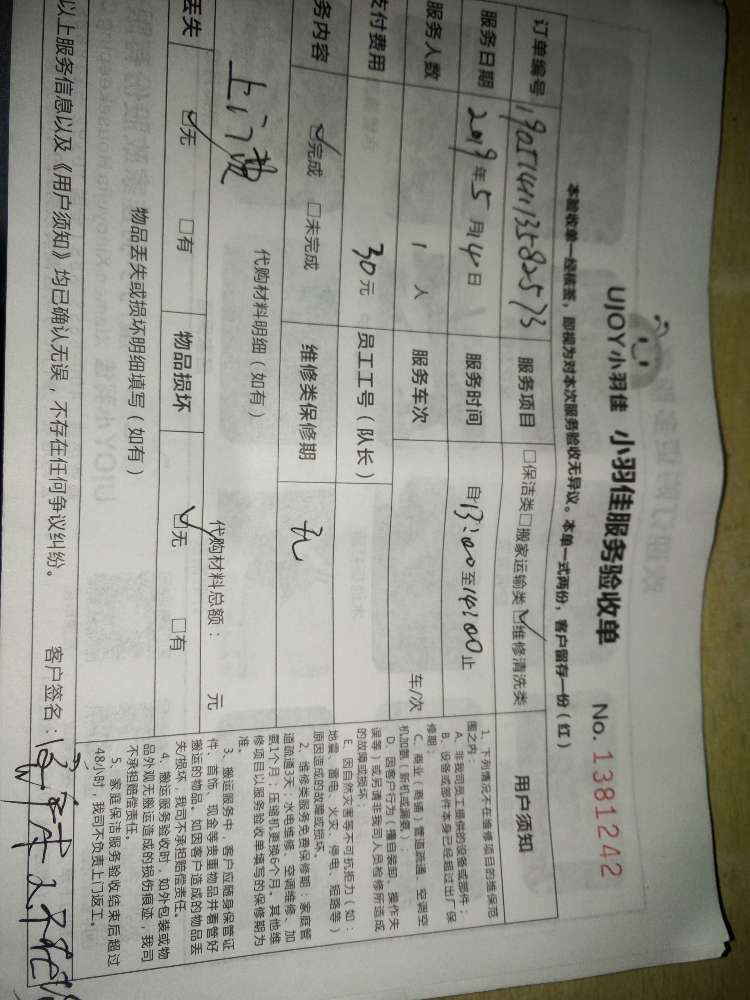 UJOY小羽佳 小羽佳服务验收单 No. 1381242
本验收单一经核签，即视为对本次服务验收无异议。本单一式两份，客户留存一份（红）
订单编号 190514113582573 服务项目 □保洁类□搬家运输类☑维修清洗类
服务日期 2019年5月14日 服务时间 自13:00至14:00止
服务人数 1人 服务车次 车/次
支付费用 30元 员工工号（队长）
务内容 ☑完成 □未完成 维修类保修期 无
代购材料明细（如有）
上门费
代购材料总额： 元
丢失 ☑无 □有 物品损坏 ☑无 □有
物品丢失或损坏明细填写（如有）
以上服务信息以及《用户须知》均已确认无误，不存在任何争议纠纷。 客户签名：
用户须知
1、下列情况不在维修项目的维保范
围之内：
A、非我司员工提供的设备或部件；
B、设备或部件本身已经超过出厂保
修期；
C、商业（商铺）管道疏通、空调空
机加氨（新机或漏氨）；
D、因客户行为（擅自装卸、操作失
误等）或另请非我司人员检修所造成
的故障或损坏；
E、因自然灾害等不可抗拒力（如：
地震、雷电、火灾、停电、短路等）
原因造成的故障或损坏。
2、维修类服务免费保修期：家庭管
道疏通3天；水电维修、空调维修、加
氨1个月；压缩机更换6个月。其他维
修项目以服务验收单填写的保修期为
准。
3、搬运服务中，客户应随身保管证
件、首饰、现金等贵重物品并看管好
搬运的物品。如因客户造成的物品丢
失/损坏，我司不承担赔偿责任。
4、搬运服务验收时，如外包装或物
品外观无搬运造成的损伤痕迹，我司
不承担赔偿责任。
5、家庭保洁服务验收结束后超过
48小时，我司不负责上门返工。